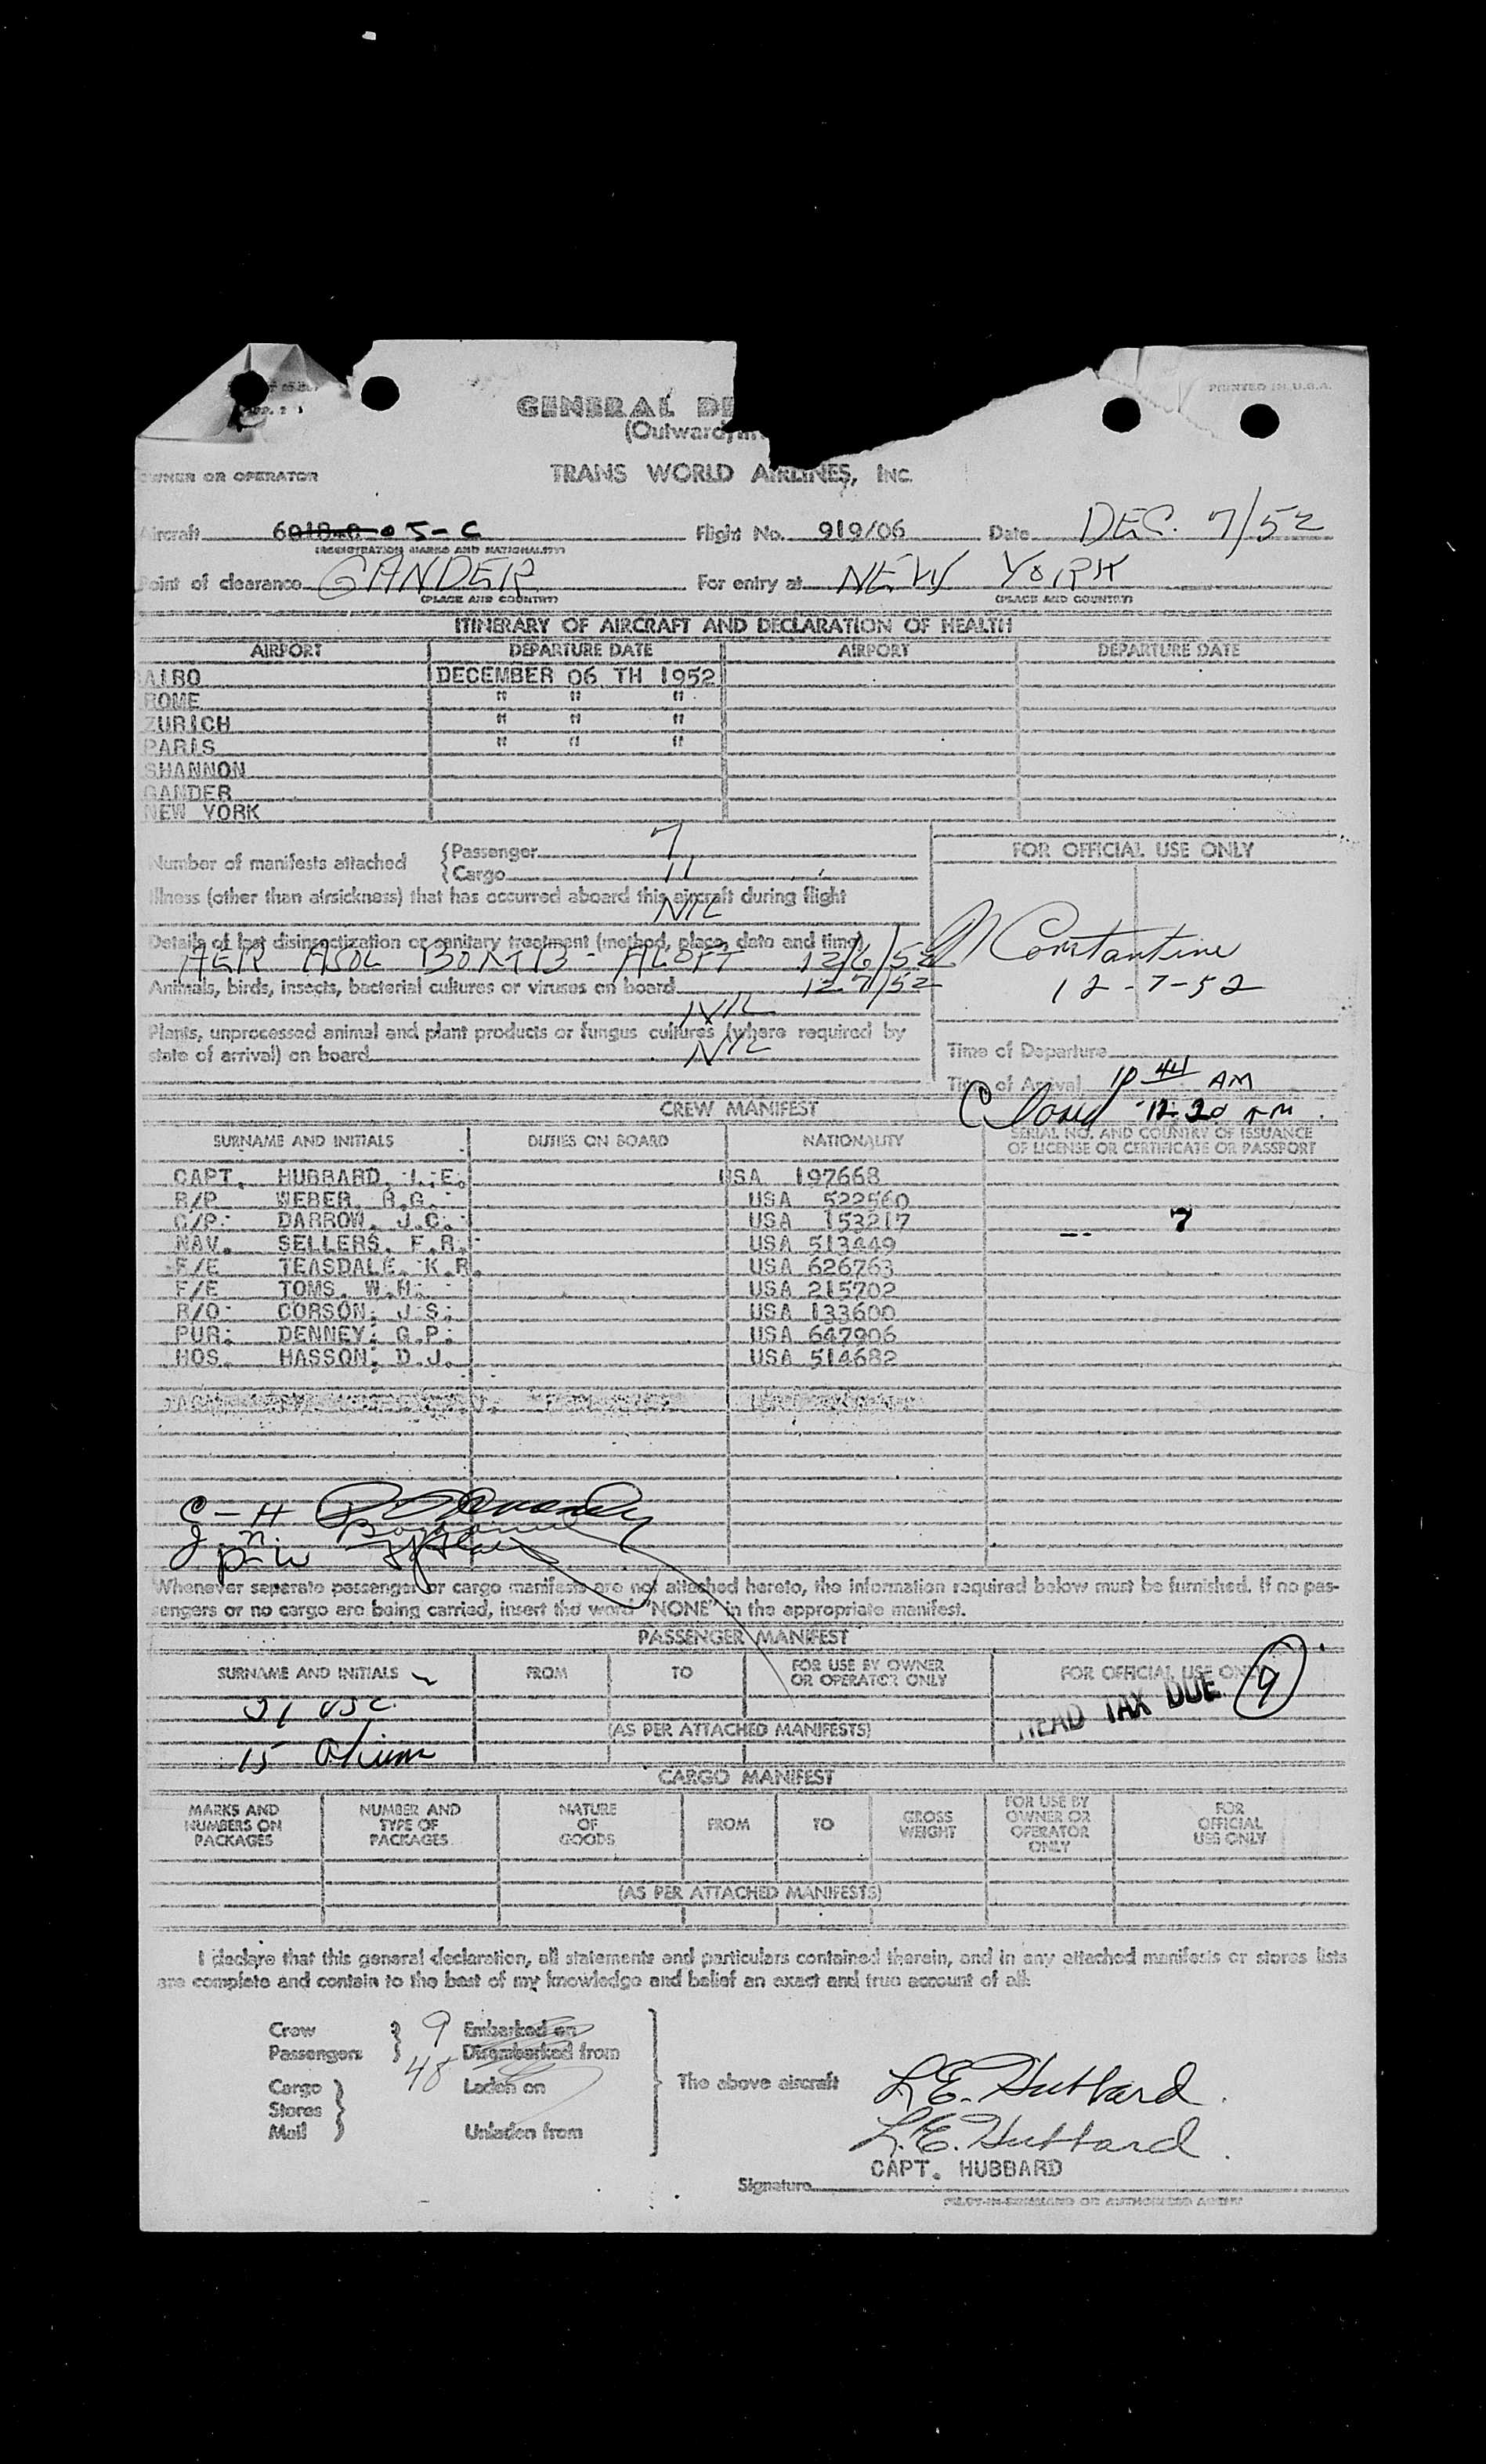 PRINTED IN U.S.A.
GENERAL DE
(Outward/In
OWNER OR OPERATOR TRANS WORLD AIRLINES, INC.
Aircraft 6018-C 05-C Flight No. 919/06 Date DEC. 7/52
(REGISTRATION MARKS AND NATIONALITY)
Point of clearance GANDER For entry at NEW YORK
(PLACE AND COUNTRY) (PLACE AND COUNTRY)
ITINERARY OF AIRCRAFT AND DECLARATION OF HEALTH
AIRPORT DEPARTURE DATE AIRPORT DEPARTURE DATE
AIRO DECEMBER 06 TH 1952
ROME " " "
ZURICH " " "
PARIS " " "
SHANNON
GANDER
NEW YORK
Number of manifests attached { Passenger 7
{ Cargo 11
FOR OFFICIAL USE ONLY
Illness (other than airsickness) that has occurred aboard this aircraft during flight
NIL
Details of last disinsectization or sanitary treatment (method, place, date and time)
AER ASOL BOMB - ALOFT 12/6/52
Constantine
Animals, birds, insects, bacterial cultures or viruses on board 12/7/52
12-7-52
NIL
Plants, unprocessed animal and plant products or fungus cultures (where required by
state of arrival) on board NIL
Time of Departure
Time of Arrival 10 44 AM
CREW MANIFEST
12 20
SURNAME AND INITIALS DUTIES ON BOARD NATIONALITY SERIAL NO. AND COUNTRY OF ISSUANCE
OF LICENSE OR CERTIFICATE OR PASSPORT
CAPT. HUBBARD. L.E. USA 197668
R/P WEBER. R.G. USA 522560
C/P. DARROW. J.C. USA 153217 7
NAV. SELLERS. F.R. USA 513449
F/E TEASDALE. K.R. USA 626763
F/E TOMS. W.H. USA 215702
R/O. CORSON. J.S. USA 133600
PUR. DENNEY. G.P. USA 647906
HOS. HASSON. D.J. USA 514682
C-H
Whenever separate passenger or cargo manifests are not attached hereto, the information required below must be furnished. If no pas-
sengers or no cargo are being carried, insert the word "NONE" in the appropriate manifest.
PASSENGER MANIFEST
SURNAME AND INITIALS FROM TO FOR USE BY OWNER
OR OPERATOR ONLY FOR OFFICIAL USE ONLY
HEAD TAX DUE 9
USC
(AS PER ATTACHED MANIFESTS)
15 Aliens
CARGO MANIFEST
MARKS AND
NUMBERS ON
PACKAGES
NUMBER AND
TYPE OF
PACKAGES
NATURE
OF
GOODS
FROM
TO
GROSS
WEIGHT
FOR USE BY
OWNER OR
OPERATOR
ONLY
FOR
OFFICIAL
USE ONLY
(AS PER ATTACHED MANIFESTS)
I declare that this general declaration, all statements and particulars contained therein, and in any attached manifests or stores lists
are complete and contain to the best of my knowledge and belief an exact and true account of all:
Crew 9 Embarked on
Passengers 48 Disembarked from
Cargo Laden on The above aircraft L.E. Hubbard
Stores
Mail Unladen from L.E. Hubbard
CAPT. HUBBARD
Signature
PILOT-IN-COMMAND OR AUTHORIZED AGENT